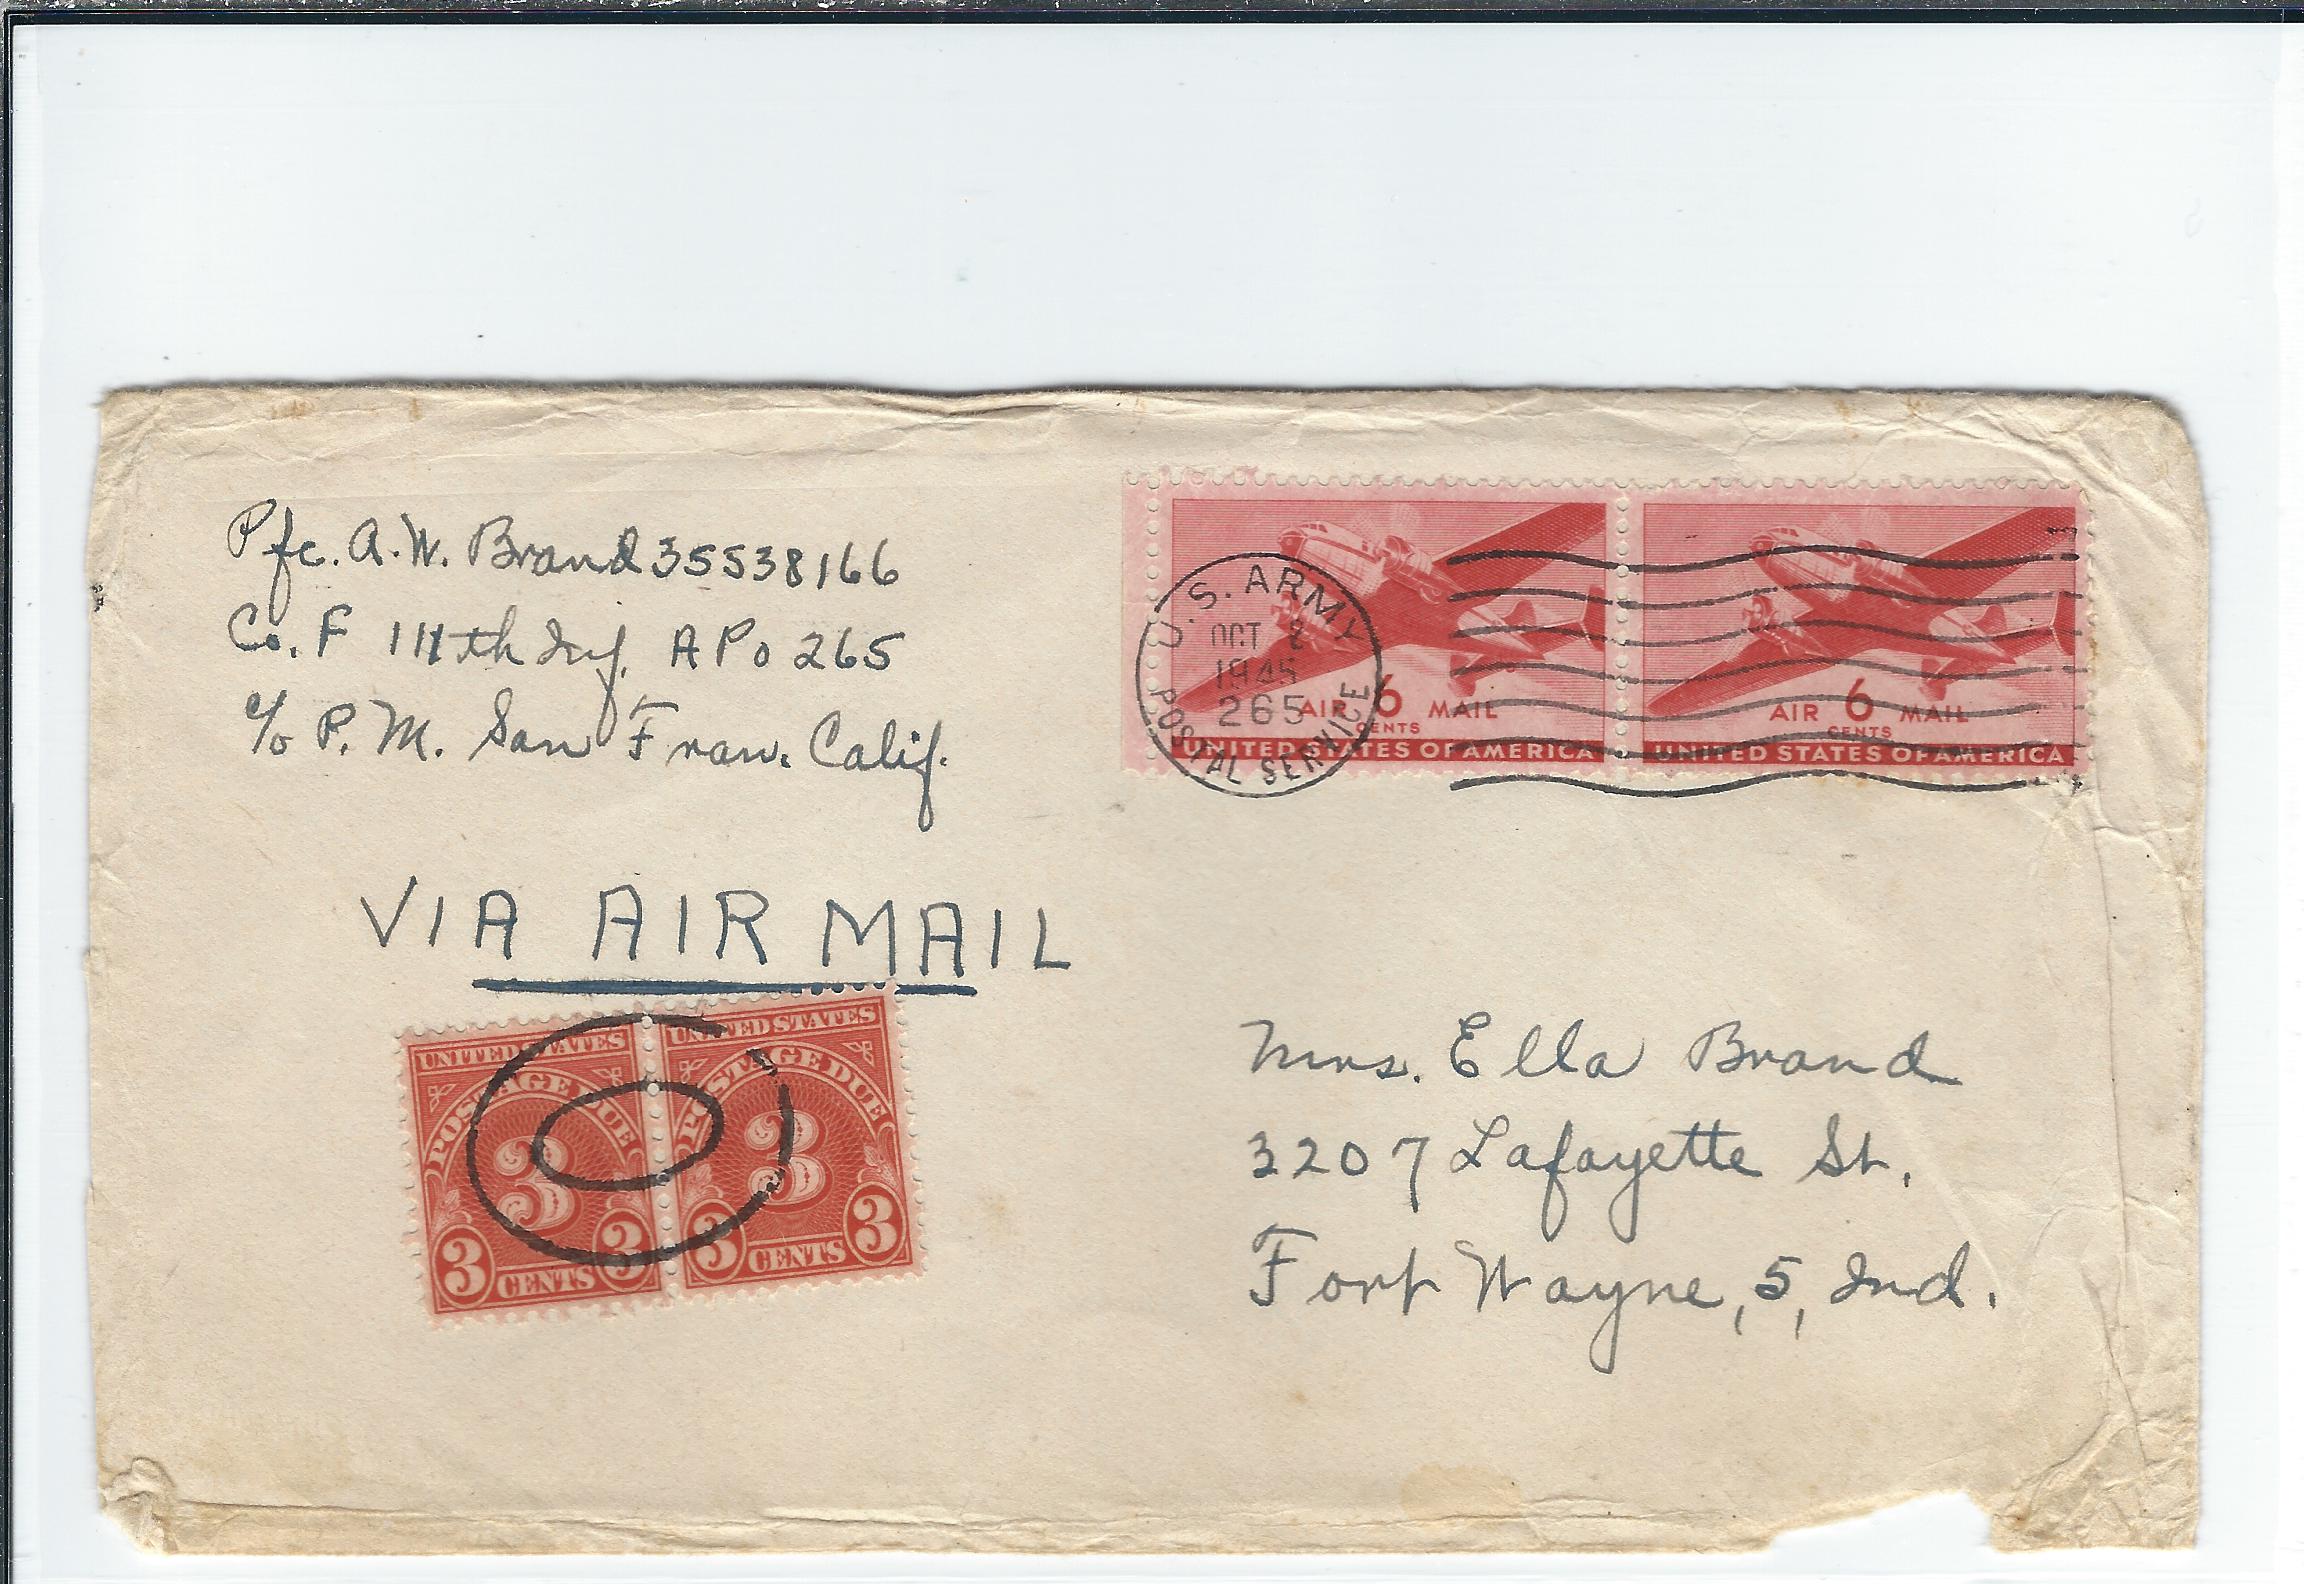 Pfc. A. W. Brand 35538166
Co. F 111th Inf. APo 265
c/o P. M. San Fran. Calif.
U.S. ARMY
OCT 2
1945
265
POSTAL SERVICE
AIR 6 MAIL
CENTS
UNITED STATES OF AMERICA
AIR 6 MAIL
CENTS
UNITED STATES OF AMERICA
VIA AIR MAIL
UNITED STATES
POSTAGE DUE
3
3 CENTS 3
UNITED STATES
POSTAGE DUE
3
3 CENTS 3
Mrs. Ella Brand
3207 Lafayette St.
Fort Wayne, 5, Ind.